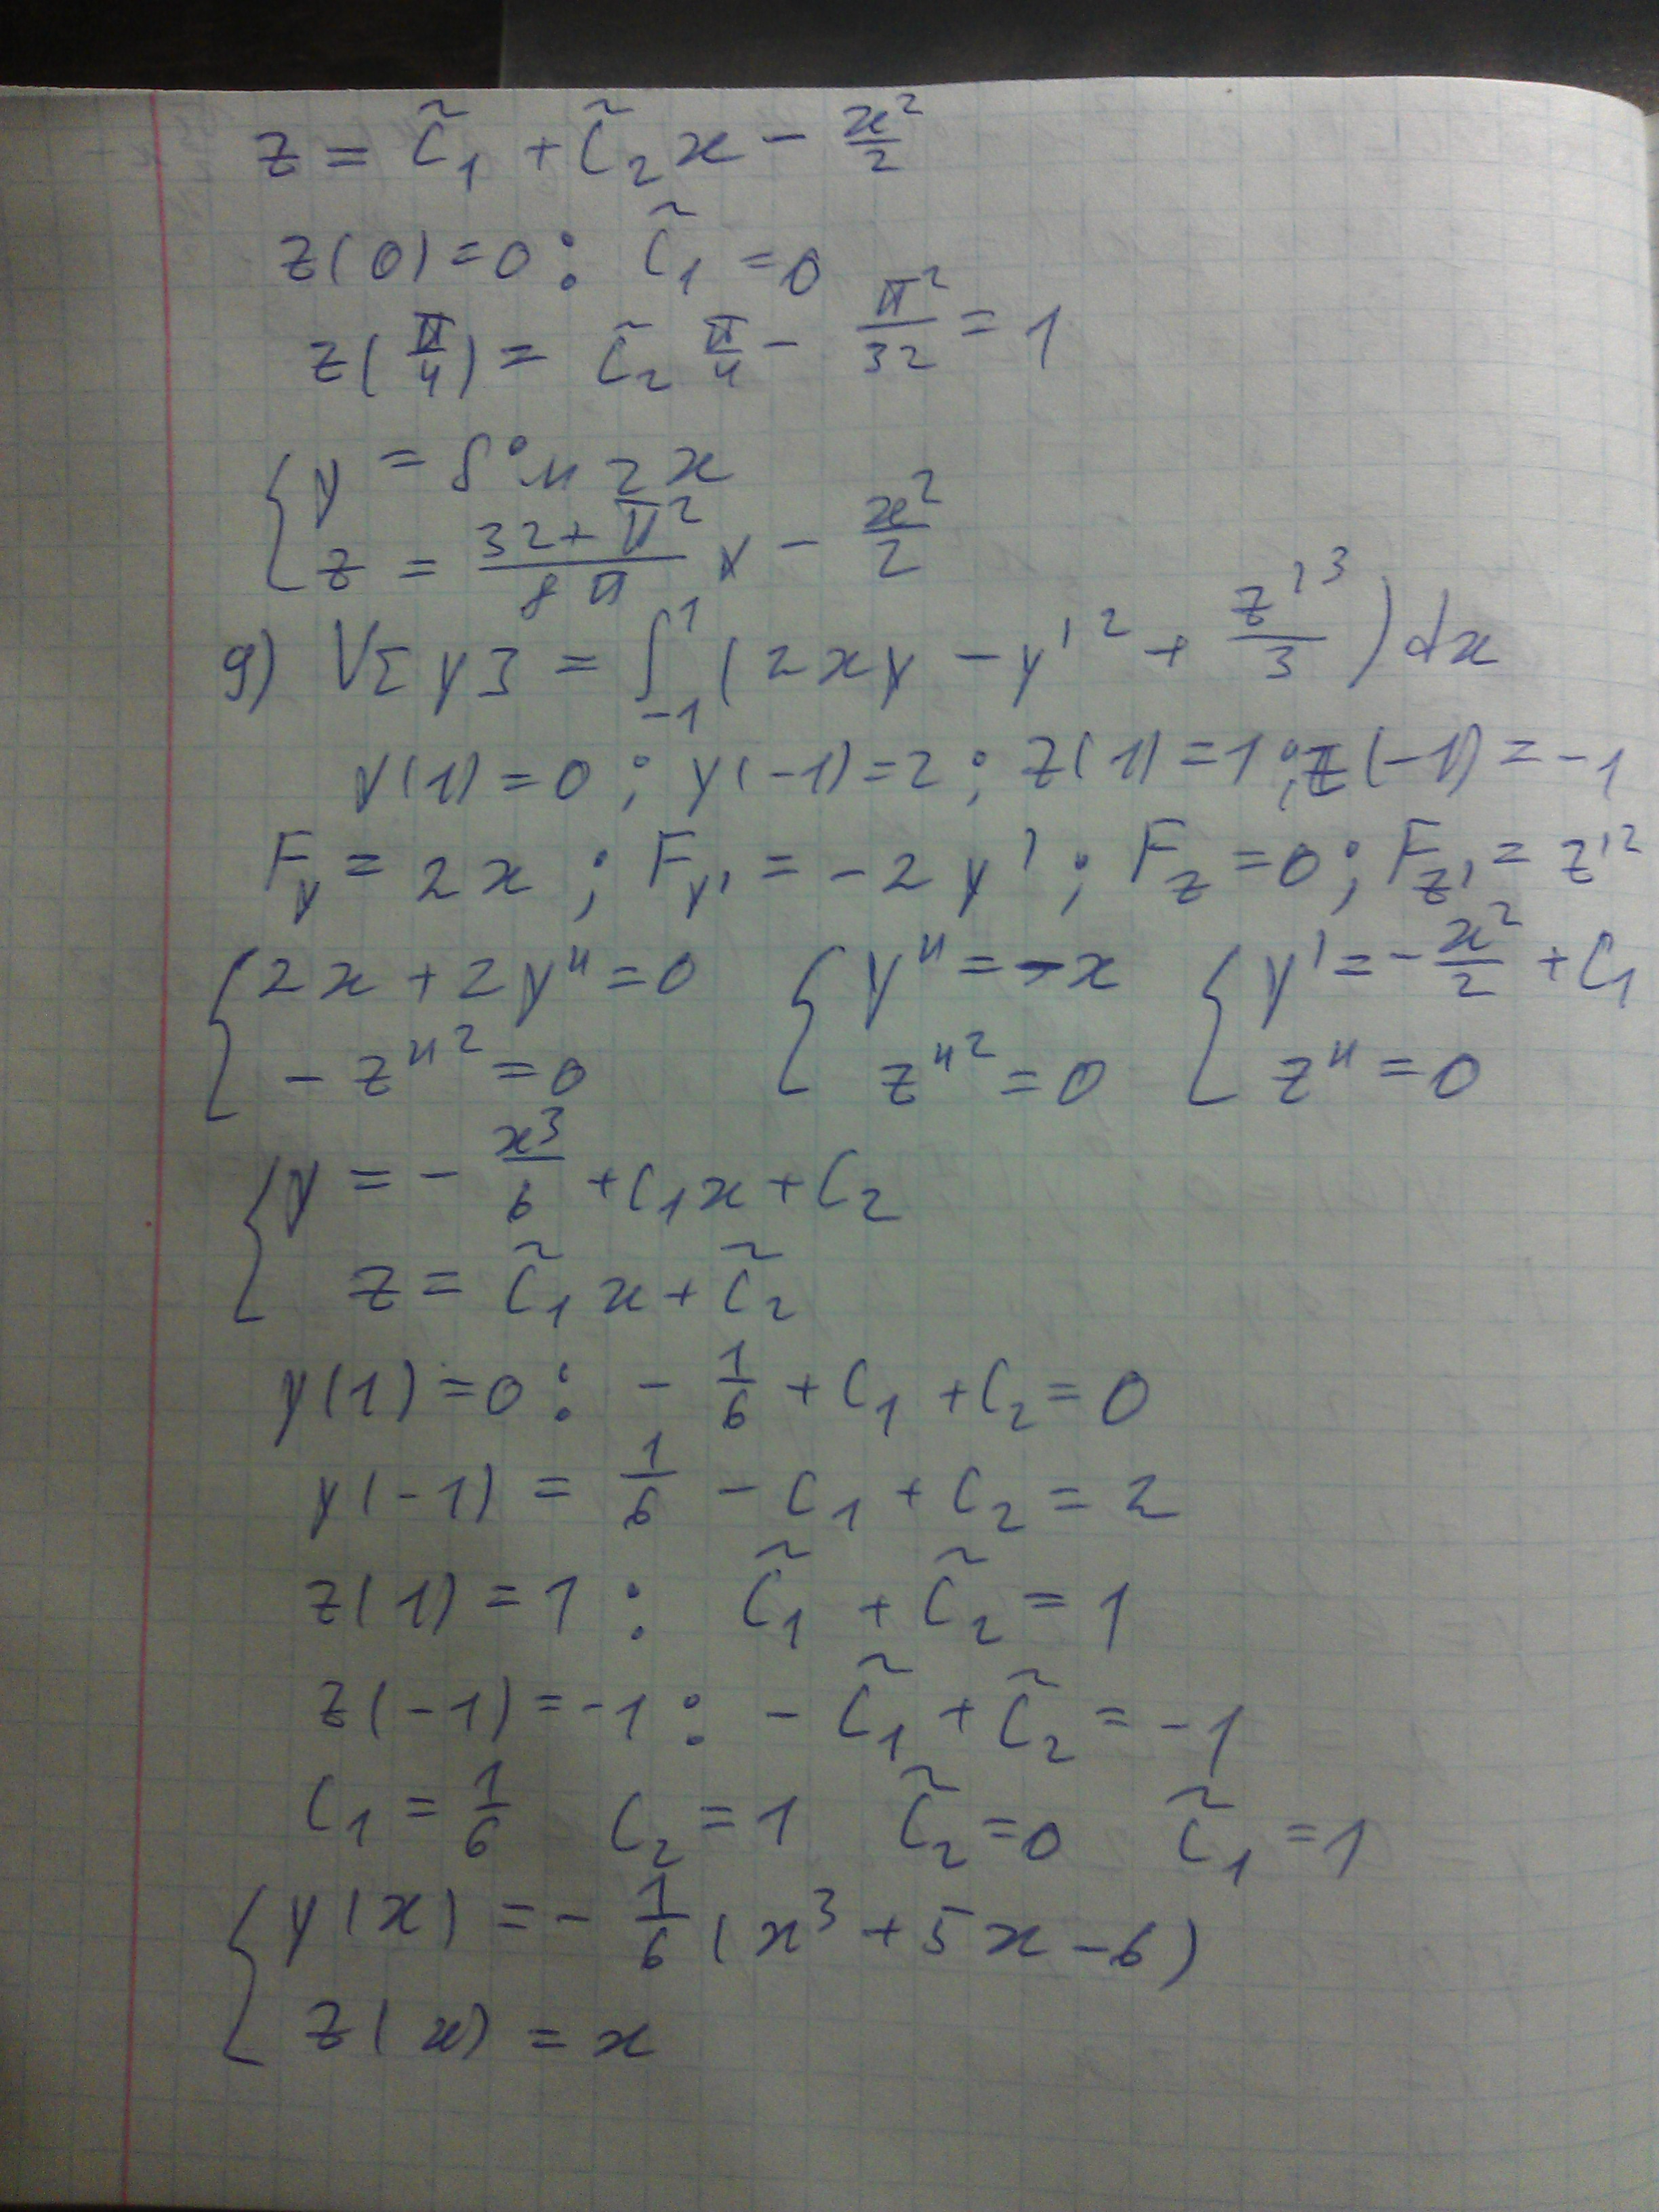 z = C̃₁ + C̃₂x − x²/2
z(0) = 0 : C̃₁ = 0
z(π/4) = C̃₂ π/4 − π²/32 = 1
{ y = sin 2x
z = (32+π²)/(8π) x − x²/2
9) V[y] = ∫₋₁¹ (2xy − y'² + z'³/3) dx
y(1) = 0 ; y(−1) = 2 ; z(1) = 1 ; z(−1) = −1
F_y = 2x ; F_y' = −2y' ; F_z = 0 ; F_z' = z'²
{ 2x + 2y'' = 0 { y'' = −x { y' = −x²/2 + C₁
− z''² = 0 z''² = 0 z'' = 0
{ y = − x³/6 + C₁x + C₂
z = C̃₁x + C̃₂
y(1) = 0 : − 1/6 + C₁ + C₂ = 0
y(−1) = 1/6 − C₁ + C₂ = 2
z(1) = 1 : C̃₁ + C̃₂ = 1
z(−1) = −1 : − C̃₁ + C̃₂ = −1
C₁ = 1/6 C₂ = 1 C̃₂ = 0 C̃₁ = 1
{ y(x) = − 1/6 (x³ + 5x − 6)
z(x) = x